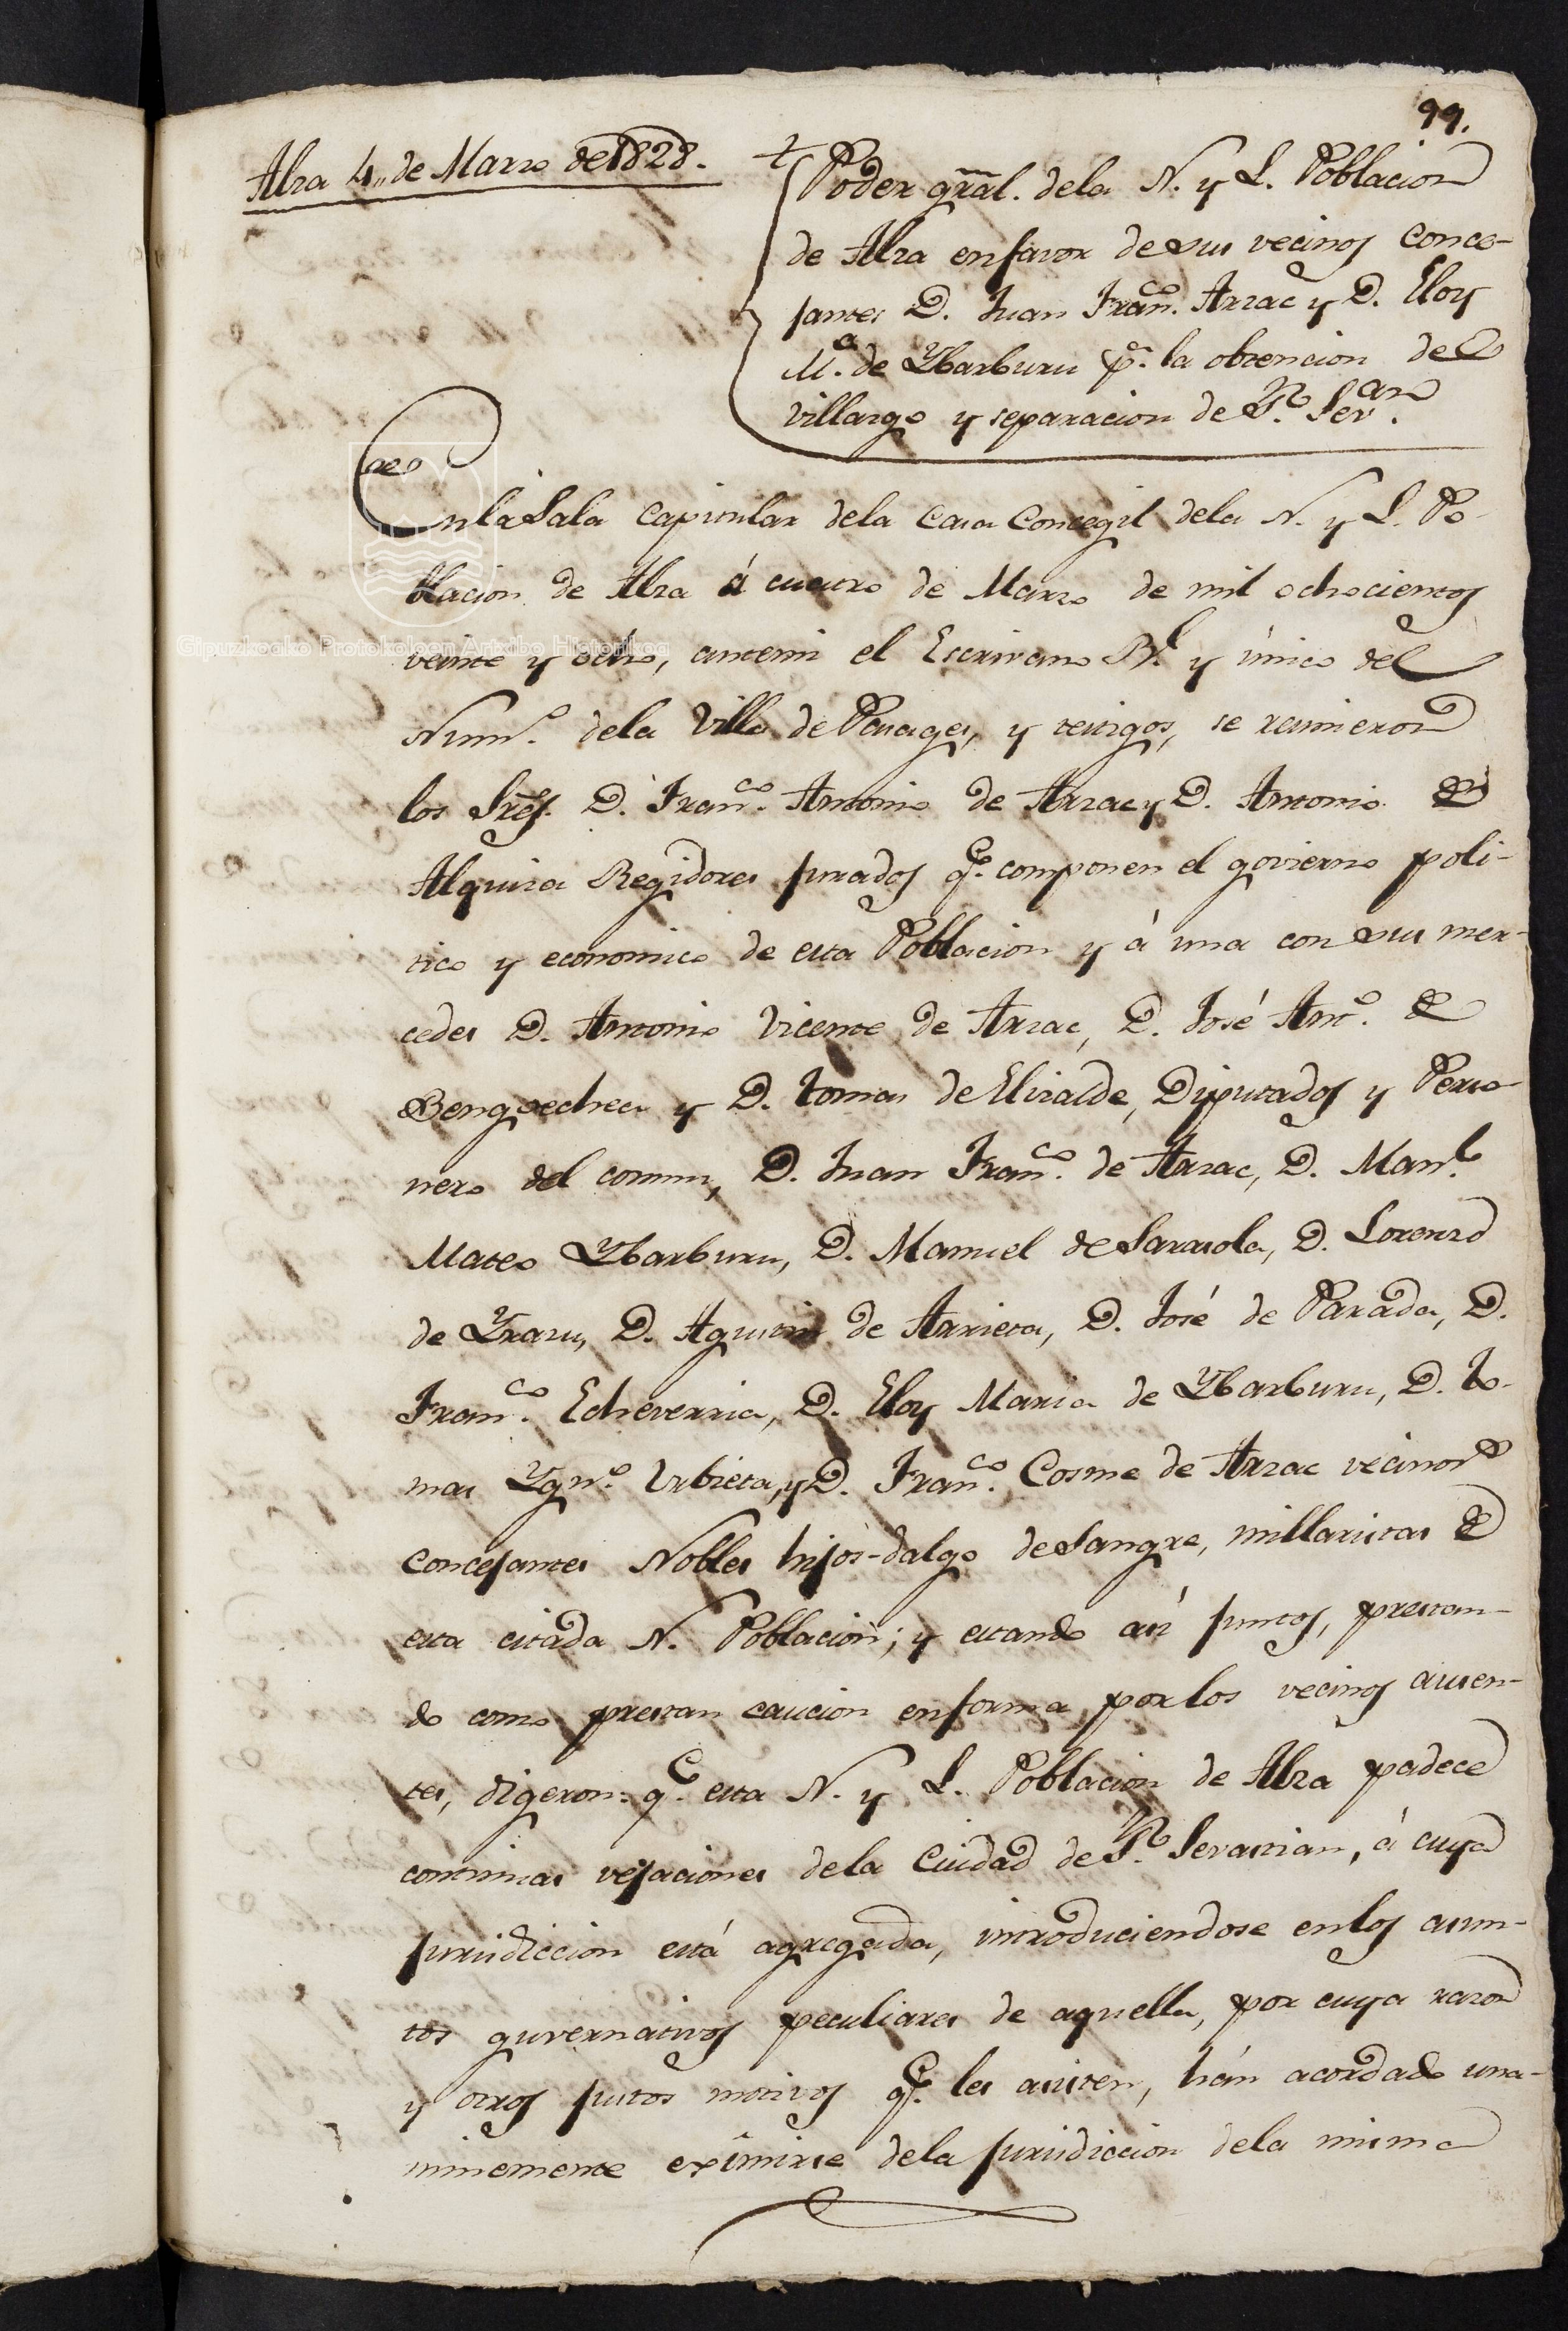 99.
Alza 4,, de Marzo de 1828.
Poder gral. dela N. y L. Poblacion
de Alza enfavor de sus vecinos conce-
jantes D. Juan Fran.co Arzac y D. Eloy
M.a de Ybarburu p.a la obtencion de
villazgo y separacion de S.n Sev.an
En la Sala Capitular dela Casa Concegil dela N. y L. Po-
blacion de Alza á cuatro de Marzo de mil ochocientos
veinte y ocho, antemi el Escrivano R.l y único del
Num.o dela Villa de Pasages, y testigos, se reunieron
los Sres. D. Fran.co Antonio de Arzac y D. Antonio de
Alquiza Regidores jurados q.e componen el govierno poli-
tico y economico de esta Poblacion y á una con sus mer-
cedes D. Antonio Vicente de Arzac, D. José Ant.o de
Bengoechea y D. Tomas de Elizalde, Diputados y Perso-
nero del comun, D. Juan Fran.co de Arzac, D. Man.l
Mateo Ybarburu, D. Manuel de Sarasola, D. Lorenzo
de Yrazu, D. Agustin de Arrieta, D. José de Parada, D.
Fran.co Echeverria, D. Eloy Maria de Ybarburu, D. To-
mas Ygn.o Urbieta, y D. Fran.co Cosme de Arzac vecinos
concejantes Nobles hijos-dalgo de Sangre, millaristas de
esta citada N. Poblacion; y estando asi juntos, prestan-
do como prestan caucion enforma por los vecinos ausen-
tes, digeron: q.e esta N. y L. Poblacion de Alza padece
continuas vejaciones dela Ciudad de S.n Sevastian, á cuya
jurisdiccion está agregada, introduciendose enlos asun-
tos guvernativos peculiares de aquella, por cuya razon
y otros justos motivos q.e les asisten, hán acordado una-
nimemente exîmirse dela jurisdiccion dela misma
Gipuzkoako Protokoloen Artxibo Historikoa